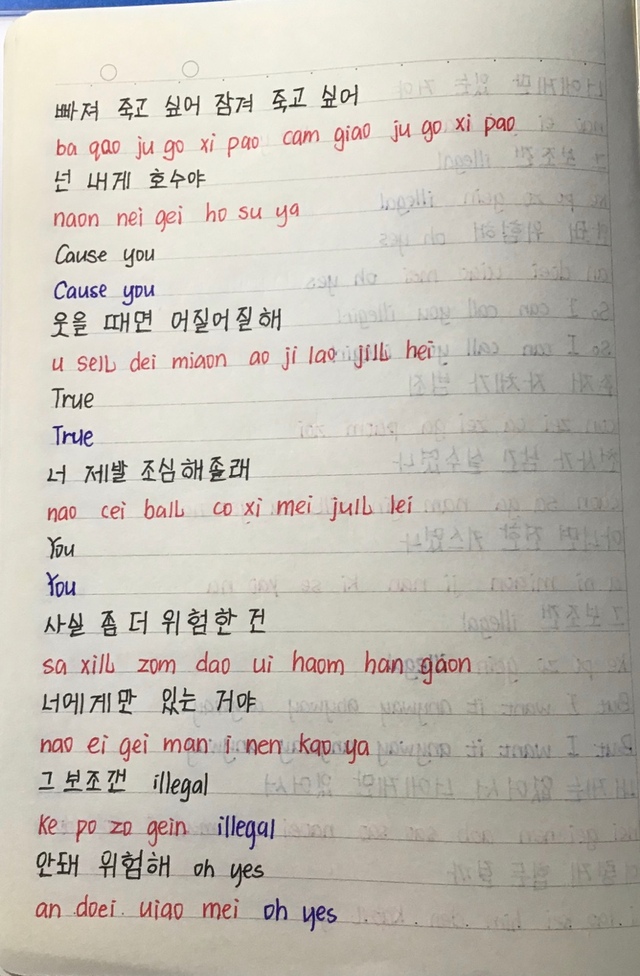 빠져 죽고 싶어 잠겨 죽고 싶어
ba qao ju go xi pao cam giao ju go xi pao
넌 내게 호수야
naon nei gei ho su ya
Cause you
Cause you
웃을 때면 어질어질해
u selL dei miaon ao ji lao jilL hei
True
True
너 제발 조심해줄래
nao cei balL co xi mei julL lei
You
You
사실 좀 더 위험한 건
sa xilL zom dao ui haom han gaon
너에게만 있는 거야
nao ei gei man i nen kao ya
그 보조갠 illegal
ke po zo gein illegal
안돼 위험해 oh yes
an doei uiao mei oh yes